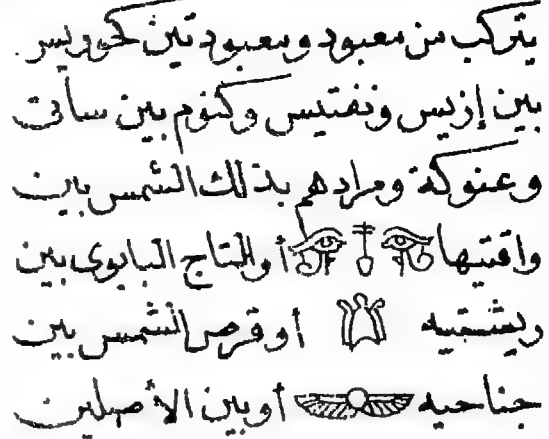 يتركب من معبود ومعبودتين كحوريس
بين إزيس ونفتيس وكنوم بين ساتى
وعنوكة ومرادهم بذلك الشمس بين
واقتيها أو التاج البابوى بين
ريشتيه أو قرص الشمس بين
جناحيه أو بين الأصلين